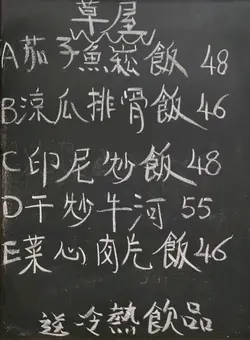 草屋
A茄子魚崧飯 48
B涼瓜排骨飯46
C印尼炒飯48
D干炒牛河 55
E菜心肉片飯46
送冷熱飲品